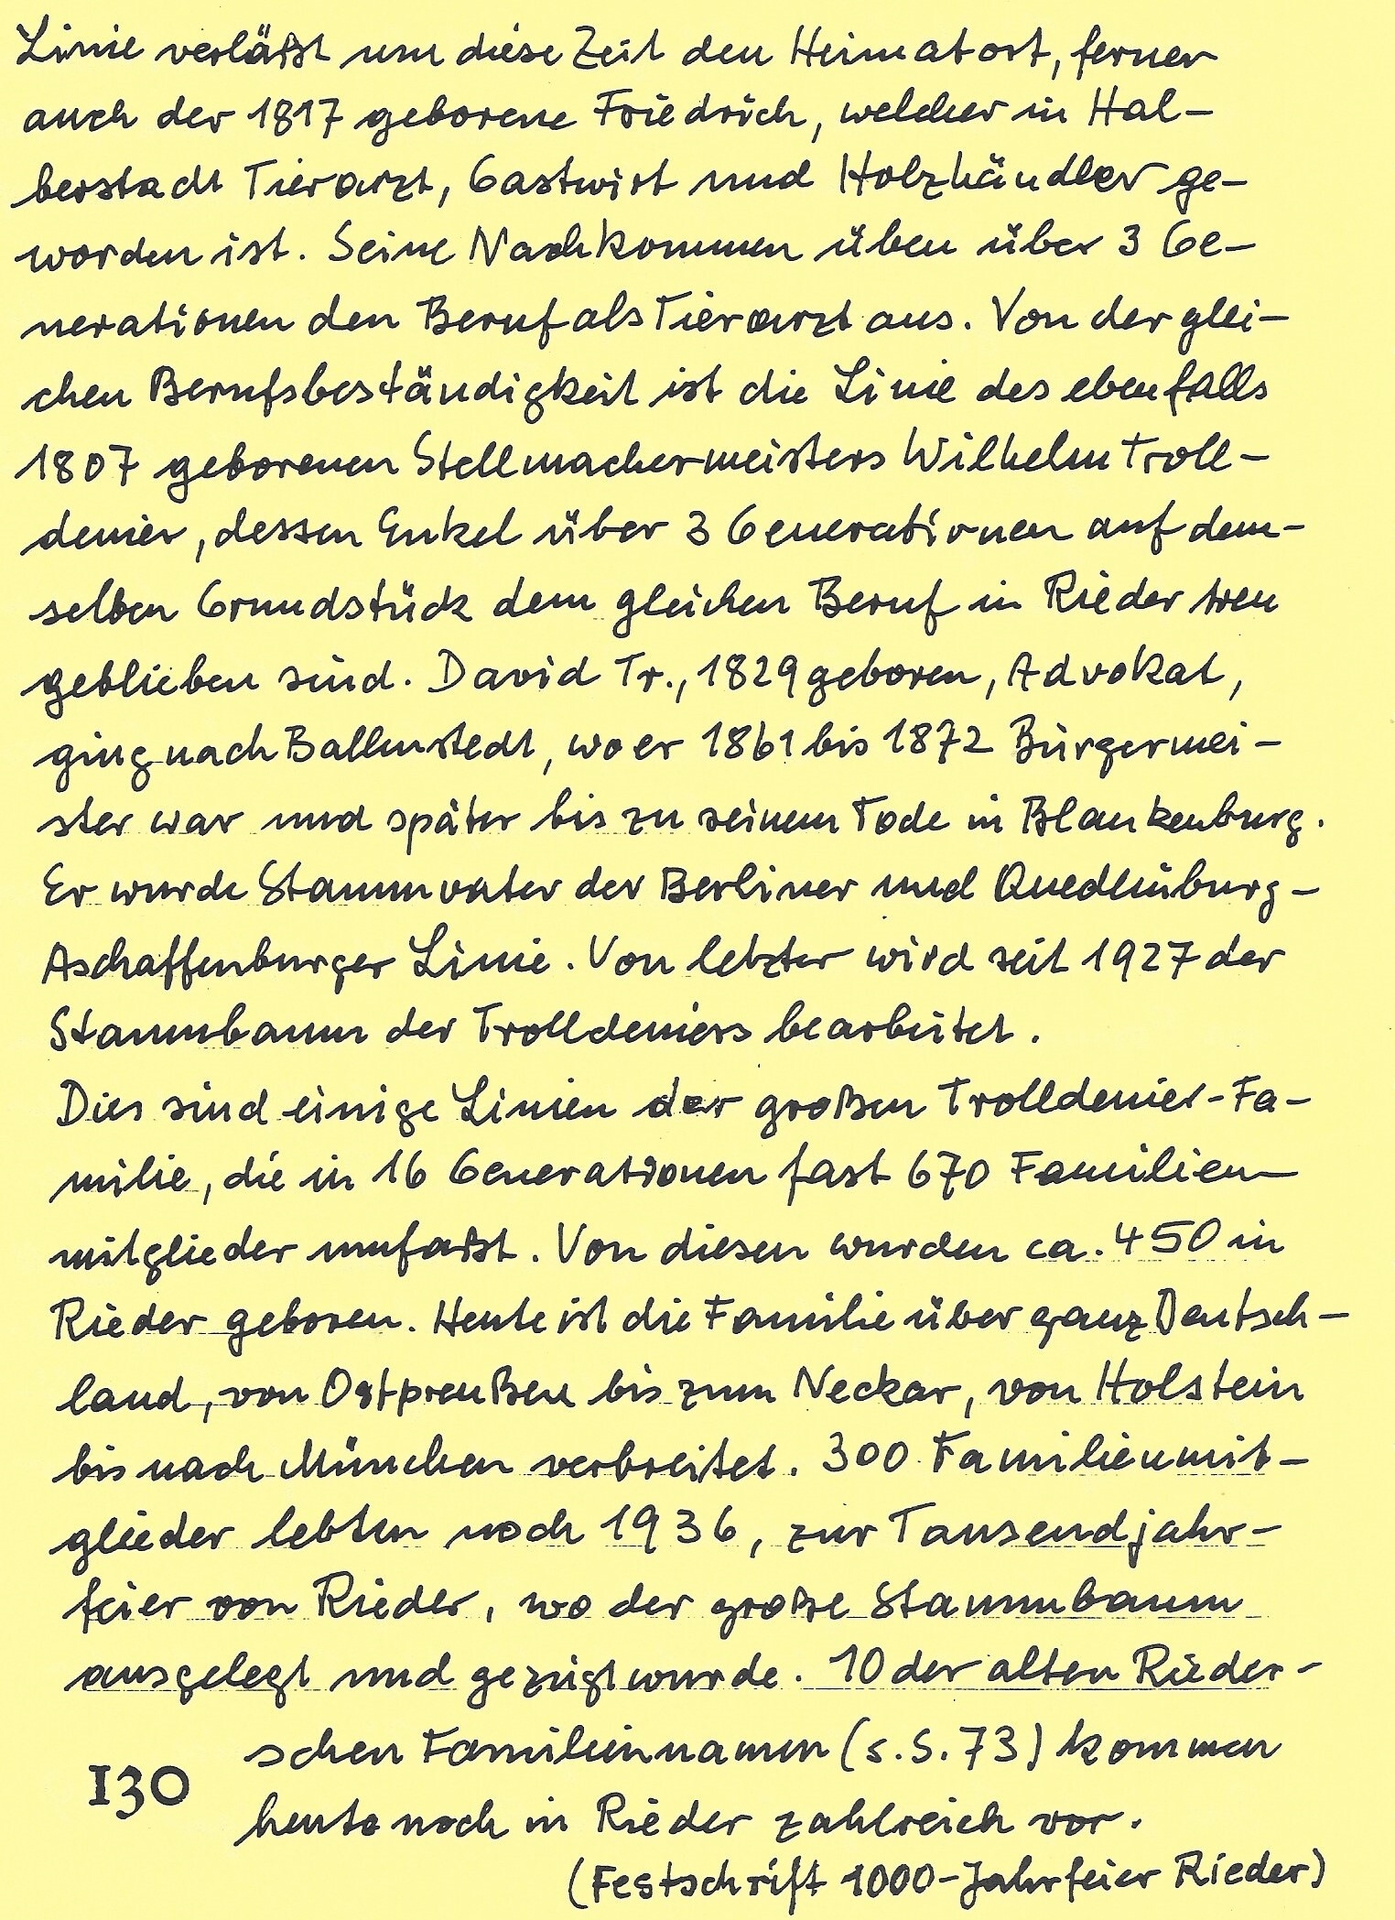 Linie verläßt um diese Zeit den Heimatort, ferner
auch der 1817 geborene Friedrich, welcher in Hal-
berstadt Tierarzt, Gastwirt und Holzhändler ge-
worden ist. Seine Nachkommen üben über 3 Ge-
nerationen den Beruf als Tierarzt aus. Von der glei-
chen Berufsbeständigkeit ist die Linie des ebenfalls
1807 geborenen Stellmachermeisters Wilhelm Troll-
denier, dessen Enkel über 3 Generationen auf dem-
selben Grundstück dem gleichen Beruf in Rieder treu
geblieben sind. David Tr., 1829 geboren, Advokat,
ging nach Ballenstedt, wo er 1861 bis 1872 Bürgermei-
ster war und später bis zu seinem Tode in Blankenburg.
Er wurde Stammvater der Berliner und Quedlinburg-
Aschaffenburger Linie. Von letzter wird seit 1927 der
Stammbaum der Trolldeniers bearbeitet.
Dies sind einige Linien der großen Trolldenier-Fa-
milie, die in 16 Generationen fast 670 Familien-
mitglieder umfaßt. Von diesen wurden ca. 450 in
Rieder geboren. Heute ist die Familie über ganz Deutsch-
land, von Ostpreußen bis zum Neckar, von Holstein
bis nach München verbreitet. 300 Familienmit-
glieder lebten noch 1936, zur Tausendjahr-
feier von Rieder, wo der große Stammbaum
ausgelegt und gezeigt wurde. 10 der alten Rieder-
schen Familiennamen (s. S. 73) kommen
130 heute noch in Rieder zahlreich vor.
(Festschrift 1000-Jahrfeier Rieder)